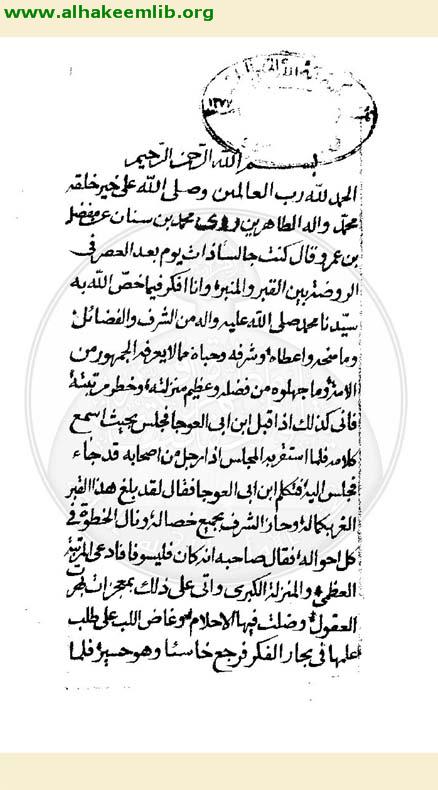 www.alhakeemlib.org
١٣٧٧
بسم الله الرحمن الرحيم
الحمد لله رب العالمين وصلى الله على خير خلقه
محمد واله الطاهرين روى محمد بن سنان عن مفضل
بن عمرو قال كنت جالسا ذات يوم بعد العصر فى
الروضة بين القبر والمنبر وانا افكر فيما خص الله به
سيدنا محمد صلى الله عليه واله من الشرف والفضائل
وما منحه واعطاه وشرفه وحباه مما لا يعرفه الجمهور من
الامة وما جهلوه من فضله وعظيم منزلته وخطر مرتبته
فانى كذلك اذا قبل ابن ابى العوجا فجلس بحيث اسمع
كلامه فلما استقر به المجلس اذا رجل من اصحابه قد جاء
فجلس اليه فتكلم ابن ابى العوجا فقال لقد بلغ هذا القبر
الغر بكماله وحاز الشرف بجميع خصاله ونال الخطوة فى
كل احواله فقال صاحبه انه كان فليسوفا فادعى المرتبة
العظمى والمنزلة الكبرى واتى على ذلك بمعجزات بهرت
العقول وضلت فيها الاحلام وغاض اللب على طلب
علمها فى بحار الفكر فرجع خاسئا وهو حسير فلما